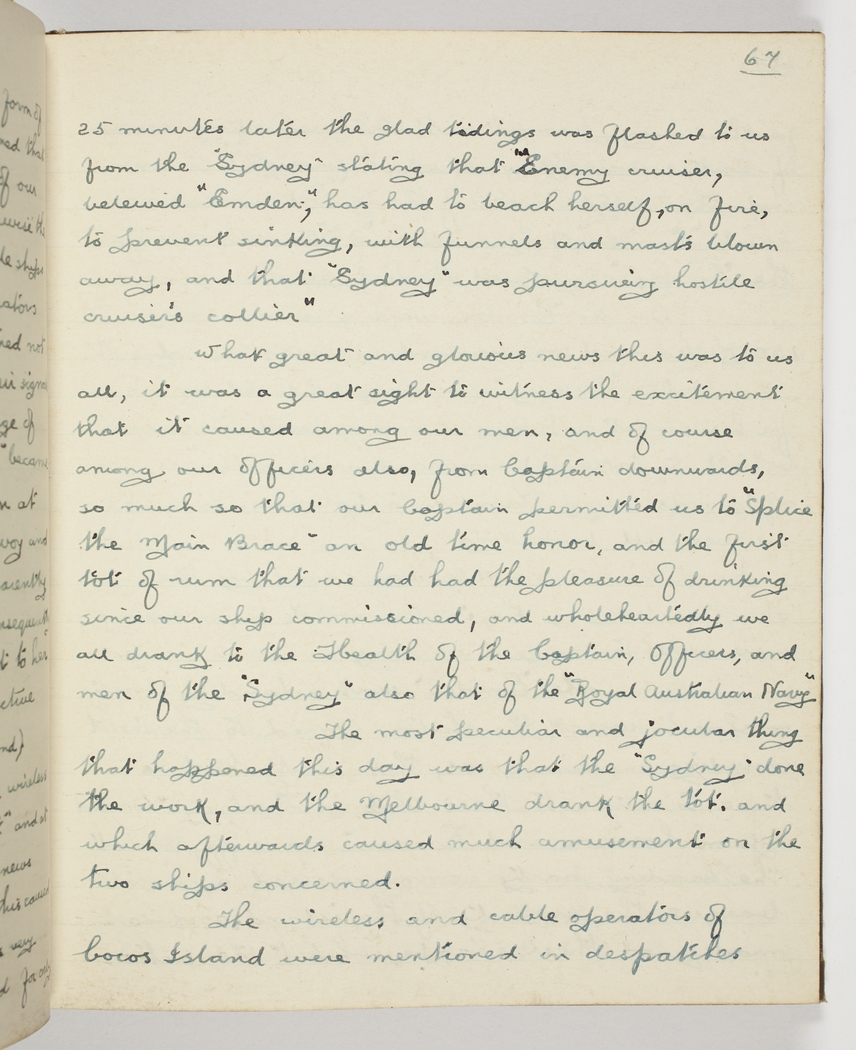 67
25 minutes later the glad tidings was flashed to us
from the "Sydney" stating that "Enemy cruiser,
beleived "Emden", has had to beach herself, on fire,
to prevent sinking, with funnels and masts blown
away, and that "Sydney" was pursueing hostile
cruiser's collier"
What great and glorious news this was to us
all, it was a great sight to witness the excitement
that it caused among our men, and of course
among our officers also, from Captain downwards,
so much so that our Captain permitted us to "Splice
the Main Brace" an old time honor, and the first
tot of rum that we had had the pleasure of drinking
since our ship commissioned, and wholeheartedly we
all drank to the Health of the Captain, Officers, and
men of the "Sydney" also that of the "Royal Australian Navy"
The most peculiar and jocular thing
that happened this day was that the "Sydney" done
the work, and the Melbourne drank the tot. and
which afterwards caused much amusement on the
two ships concerned.
The wireless and cable operators of
Cocos Island were mentioned in despatches